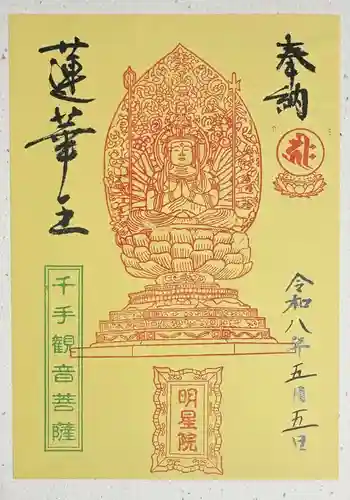 奉納
蓮華王
千手観音菩薩
明星院
令和八年五月五日